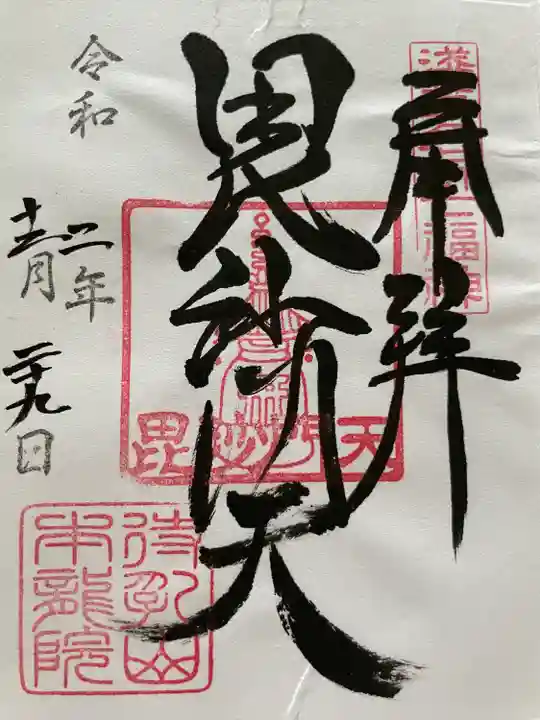 奉拝
毘沙門天
毘沙門天
令和
二年
十二月
二十九日
待乳山
本龍院